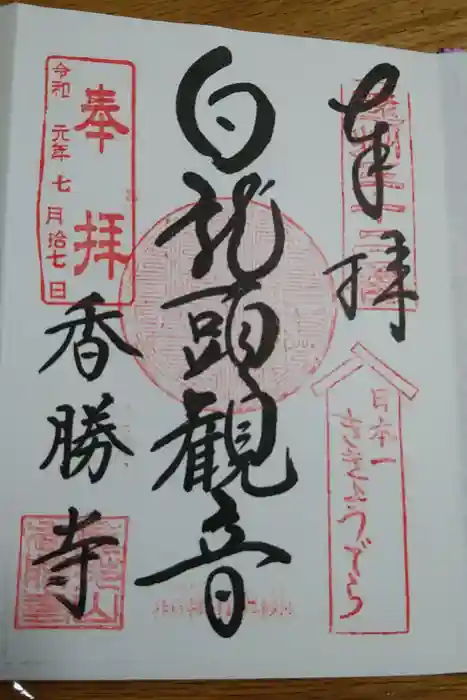 奉拝
日本一
ききょうでら
白龍頭観音
奉拝
令和 元年 七月拾七日
香勝寺